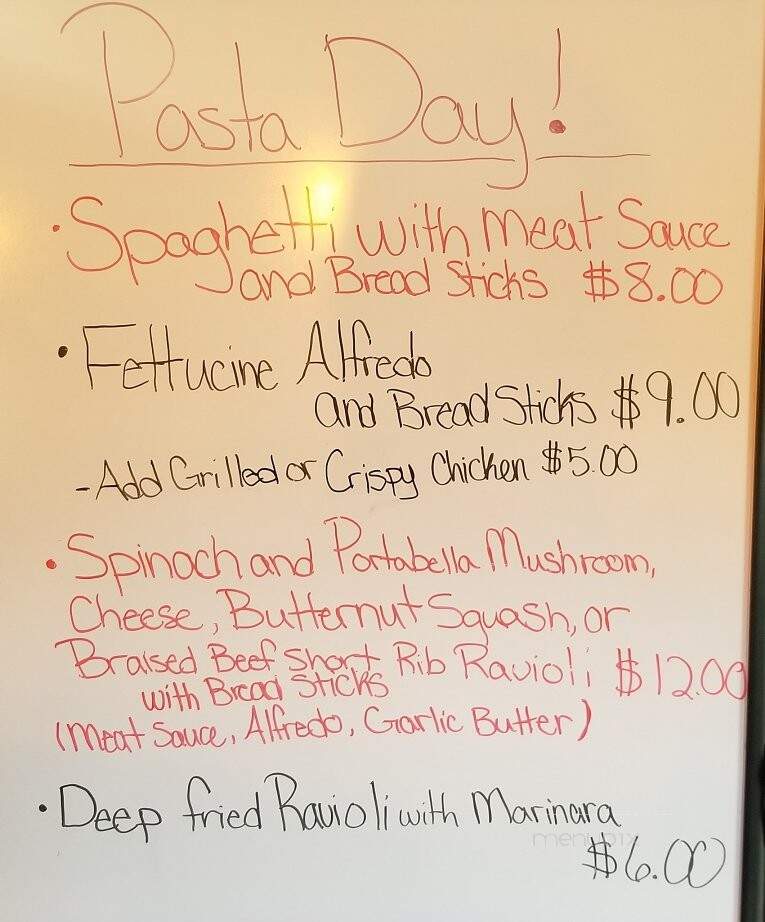 Pasta Day!
· Spaghetti with Meat Sauce
and Bread Sticks $8.00
· Fettucine Alfredo
and Bread Sticks $9.00
- Add Grilled or Crispy Chicken $5.00
· Spinach and Portabella Mushroom,
Cheese, Butternut Squash, or
Braised Beef Short Rib Ravioli $12.00
with Bread Sticks
(Meat Sauce, Alfredo, Garlic Butter)
· Deep fried Ravioli with Marinara
menupix
$6.00